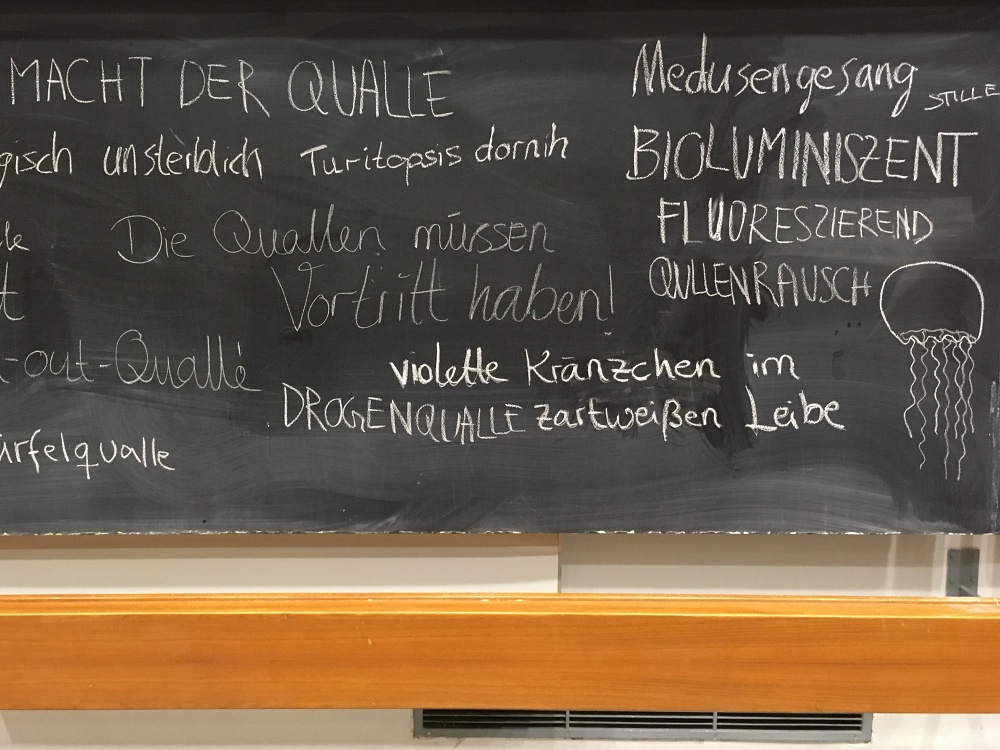 MACHT DER QUALLE
gisch unsterblich Turitopsis dornih
Die Quallen müssen
Vortritt haben!
t
-out-Qualle
ürfelqualle
violette Kränzchen im
DROGENQUALLE zartweißen Leibe
Medusengesang
STILLE
BIOLUMINISZENT
FLUORESZIEREND
QULLENRAUSCH